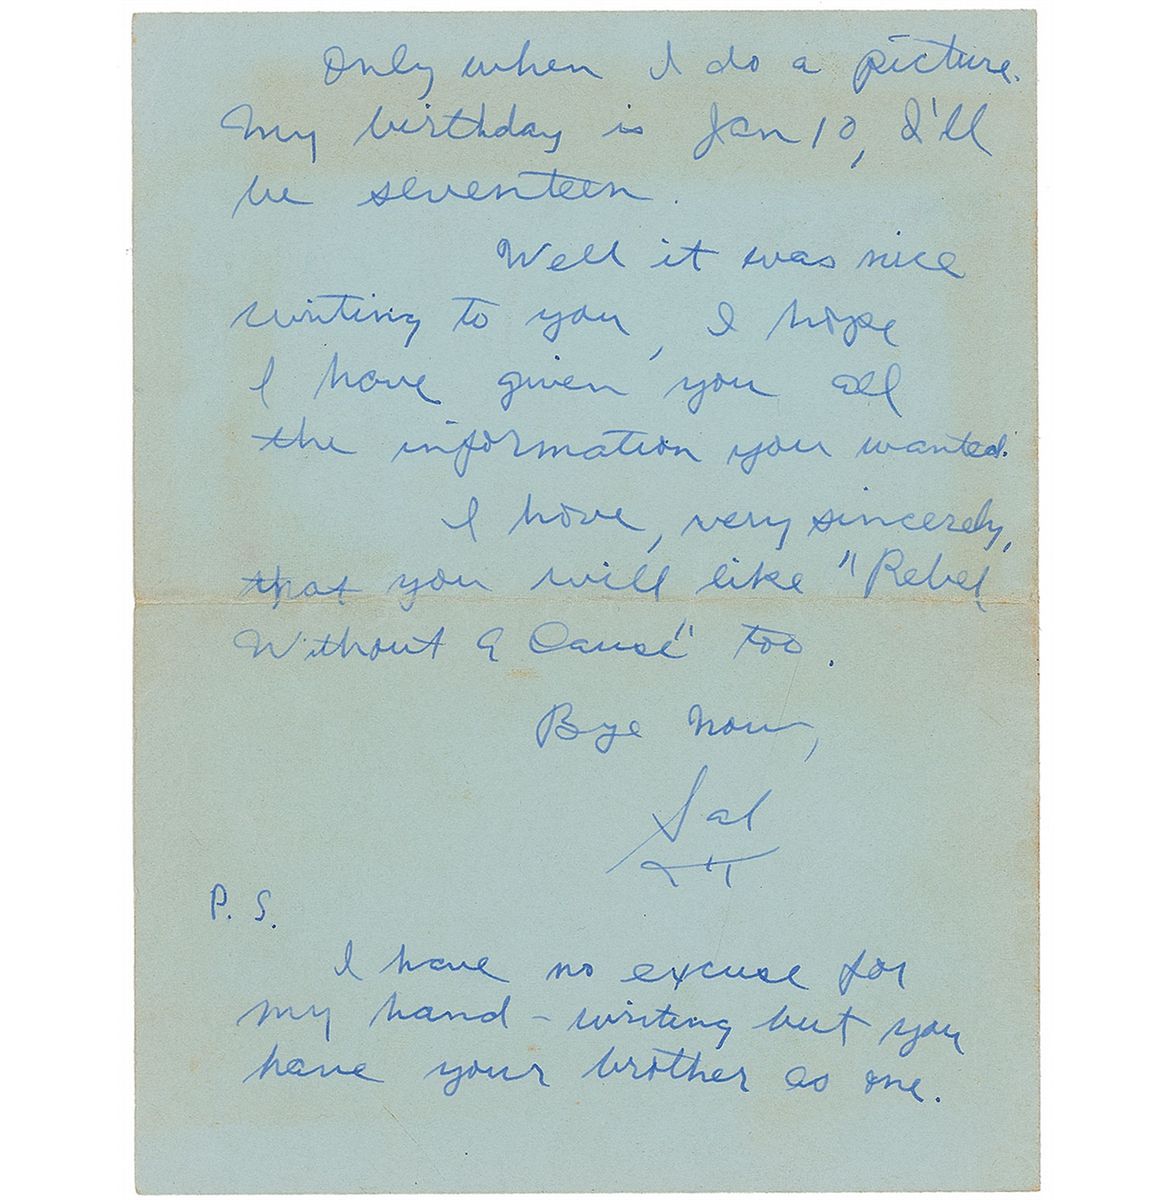 Only when I do a picture.
My birthday is Jan 10, I'll
be seventeen.
Well it was nice
writing to you, I hope
I have given you all
the information you wanted.
I hove, very sincerely,
that you will like "Rebel
Without A Cause" too.
Bye Now,
Sal
P. S.
I have no excuse for
my hand - writing but you
have your brother as one.